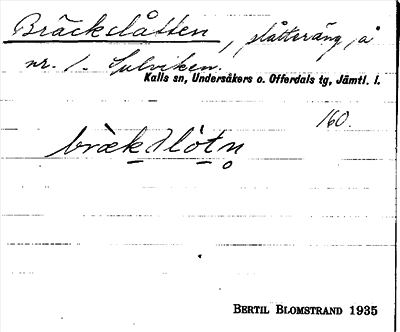 Bräckslåtten, slåtteräng, å
nr. 1. Sulviken.
Kalls sn, Undersåkers o. Offerdals tg, Jämtl. l.
160.
Bertil Blomstrand 1935